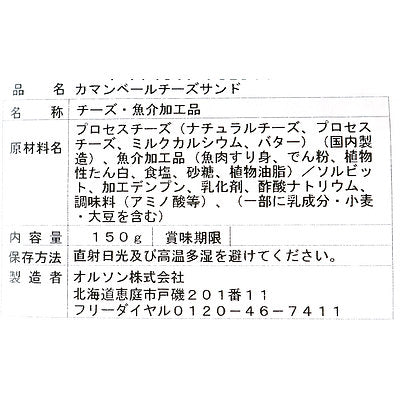 品 名 カマンベールチーズサンド
名 称 チーズ・魚介加工品
原材料名 プロセスチーズ（ナチュラルチーズ、プロセス
チーズ、ミルクカルシウム、バター）（国内製
造）、魚介加工品（魚肉すり身、でん粉、植物
性たん白、食塩、砂糖、植物油脂）／ソルビッ
ト、加工デンプン、乳化剤、酢酸ナトリウム、
調味料（アミノ酸等）、（一部に乳成分・小麦
・大豆を含む）
内 容 量 150g 賞味期限
保存方法 直射日光及び高温多湿を避けてください。
製 造 者 オルソン株式会社
北海道恵庭市戸磯201番11
フリーダイヤル0120-46-7411